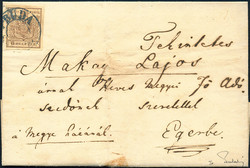 Tekintetes
Makay Lajos
úrnak Heves Megyei Fő Adó
szedőnek szeretettel
a Megye Házánál. Egerbe